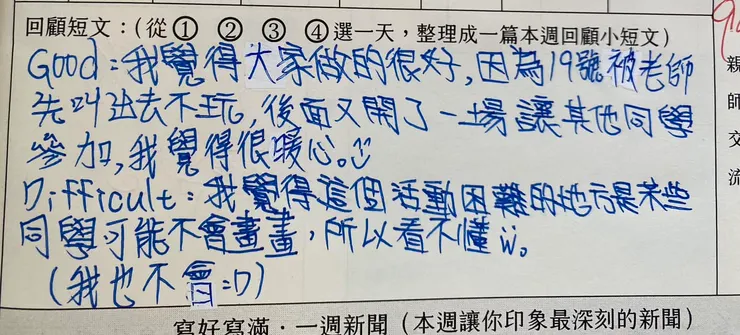 回顧短文：(從① ② ③ ④選一天，整理成一篇本週回顧小短文)
Good：我覺得大家做的很好，因為19號被老師
先叫出去不玩，後面又開了一場讓其他同學
參加，我覺得很暖心。
Difficult：我覺得這個活動困難的地方是某些
同學可能不會畫畫，所以看不懂ü。
(我也不會=D)
寫好寫滿．一週新聞（本週讓你印象最深刻的新聞）
親
師
交
流